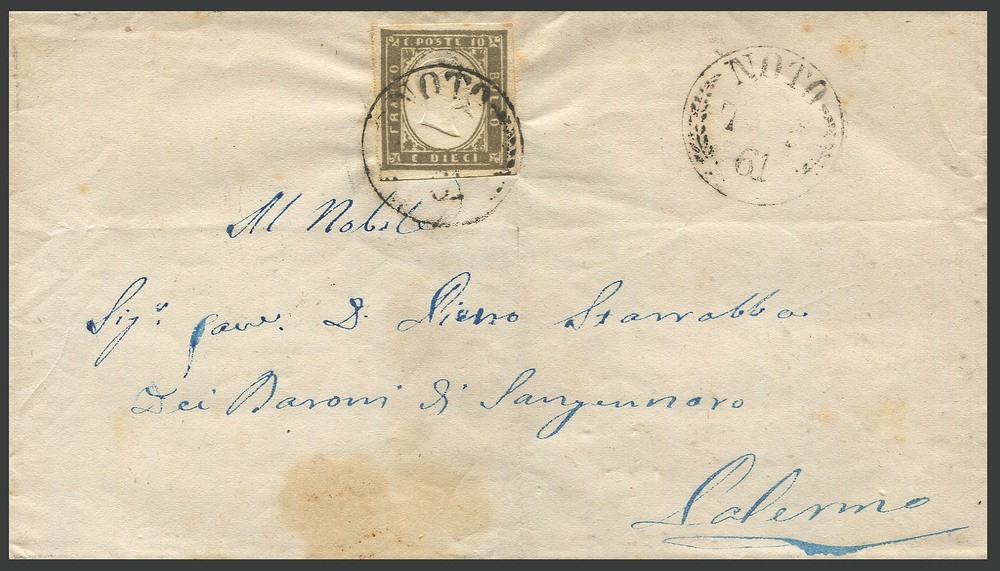 C. POSTE 10
FRANCO
BOLLO
C. DIECI
NOTO
61
NOTO
7
61
Al Nobile
Sig.r Cav. D. Pietro Starrabba
Dei Baroni di Sangennaro
Palermo